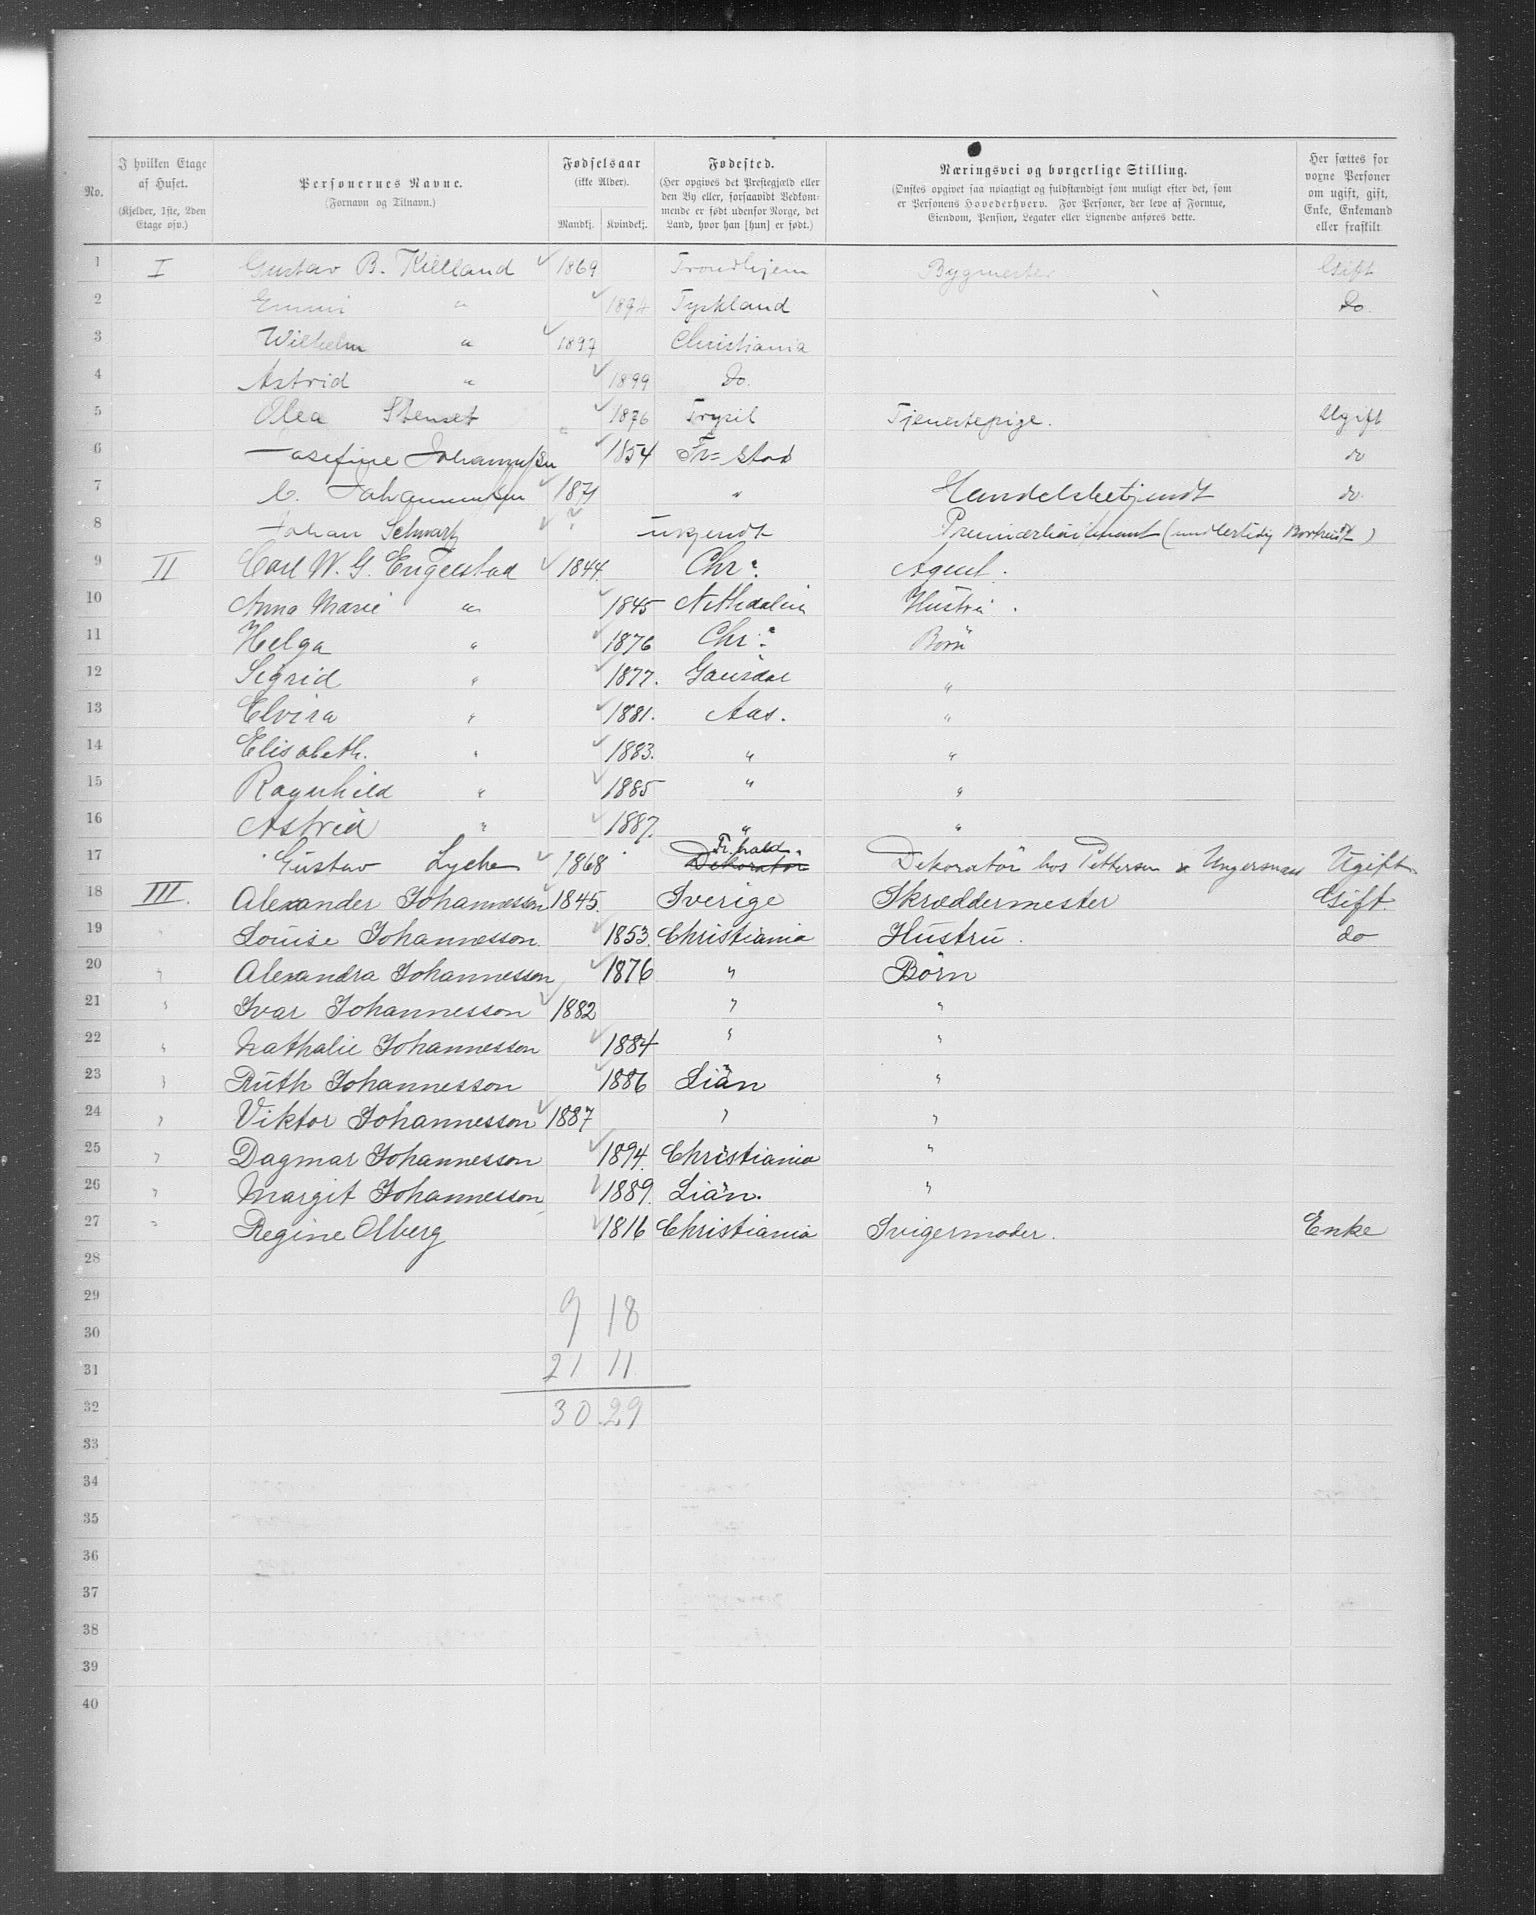 No. | I hvilken Etage af Huset. (Kjelder, 1ste, 2den Etage osv.) | Personernes Navne. (Fornavn og Tilnavn.) | Fødselsaar (ikke Alder). Mandkj. Kvindekj. | Fødested. (Her opgives det Prestegjæld eller den By eller, forsaavidt Vedkommende er født udenfor Norge, det Land, hvor han [hun] er født.) | Næringsvei og borgerlige Stilling. (Ønskes opgivet saa nøiagtigt og fuldstændigt som muligt efter det, som er Personens Hovederhverv. For Personer, der leve af Formue, Eiendom, Pension, Legater eller Lignende anføres dette. | Her sættes for voxne Personer om ugift, gift, Enke, Enkemand eller fraskilt
1 I Gustav B. Kielland 1869 Trondhjem Bygmester Gift
2 Emmi " 1874 Tyskland do.
3 Wilhelm " 1897 Christiania
4 Astrid " 1899 do.
5 Olea Stenset 1876 Trysil Tjenestepige. Ugift
6 Josefine Johannessen 1854 Fr=stad do
7 Johannessen 1871 " Handelsbetjendt do.
8 Johan Schwartz ? ukjendt Premierløitenant (midlertidig Bortreist)
9 II Carl W. G. Engelstad 1844 Chr: Agent.
10 Anna Marie " 1845 Nithedalen Hustru.
11 Helga " 1876 Chr: Børn
12 Sigrid " 1877. Gausdal "
13 Elvira " 1881. Aas. "
14 Elisabeth. " 1883. " "
15 Ragnhild " 1885 " "
16 Astrid " 1887. " "
17 Gustav Lyche 1868 Fr.hald Dekoratör Dekoratör hos Pettersen & Ugift
18 III. Alexander Johannesson 1845. Sverige Skræddermester Gift.
19 " Louise Johannesson. 1853. Christiania Hustru. do
20 " Alexandra Johannesson 1876 " Børn
21 " Ivar Johannesson 1882 " "
22 " Nathalie Johannesson 1884 " "
23 " Ruth Johannesson 1886 Liän "
24 " Viktor Johannesson 1887 " "
25 " Dagmar Johannesson 1894. Christiania "
26 " Margit Johannesson 1889. Liän. "
27 " Regine Olberg 1816 Christiania Svigermoder. Enke
28
29 9 18
30
31 21 11
32 30.29
33
34
35
36
37
38
39
40